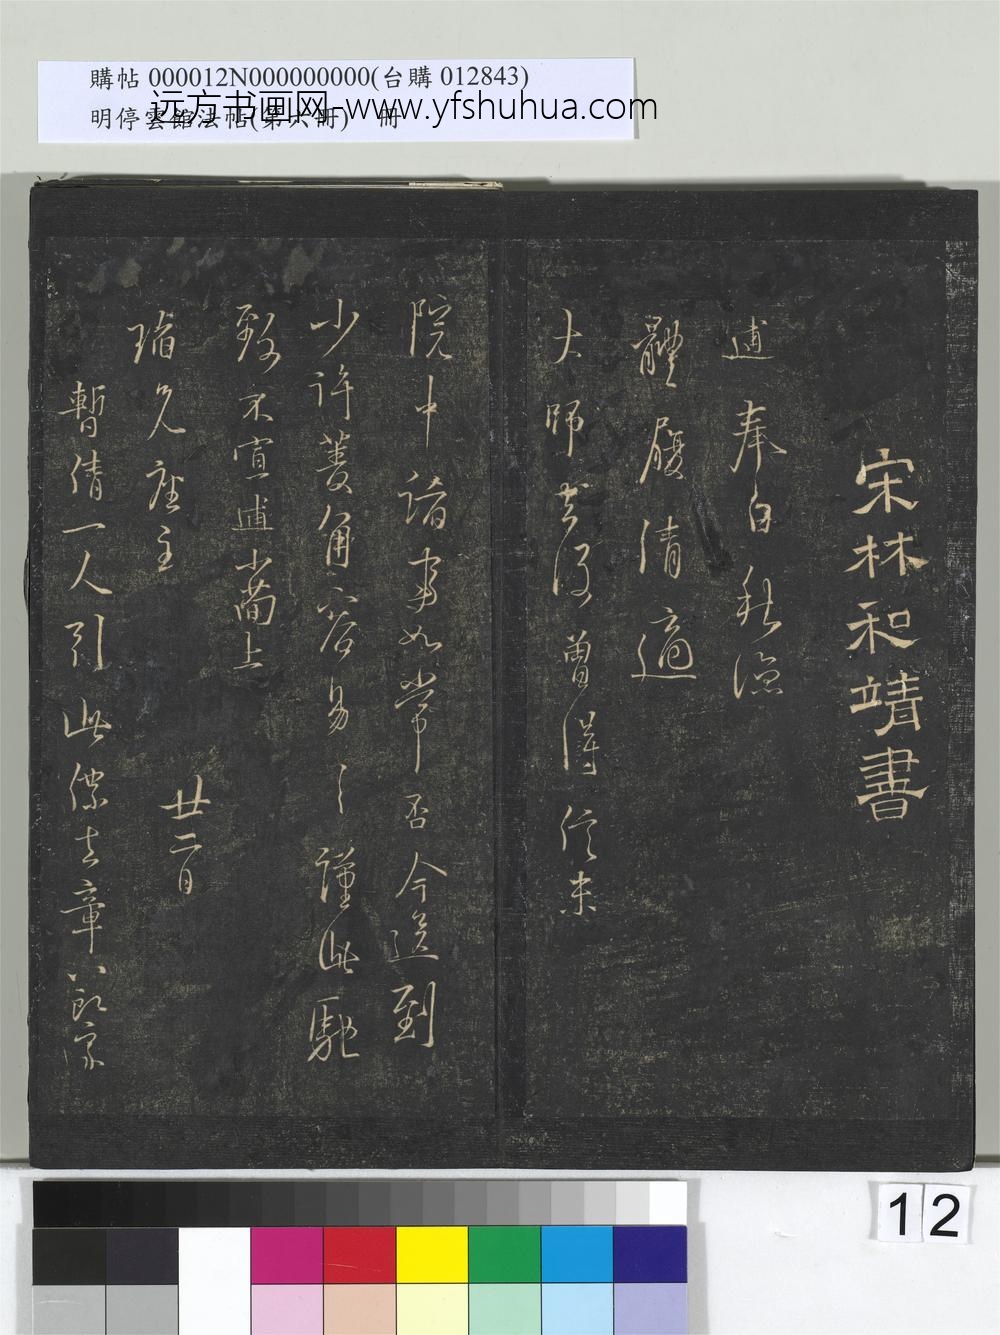 購帖 000012N000000000(台購 012843)
明停雲館法帖(第六冊) 冊
远方书画网-www.yfshuhua.com
宋林和靖書
逋 奉白秋涼
體履清適
大師 曾得信未
院中諸事如常否今送到
少許菱角容易〻謹此馳
致不宣逋小簡上
瑞兄座主
廿二日
暫倩一人引此僳去章八郎家
12